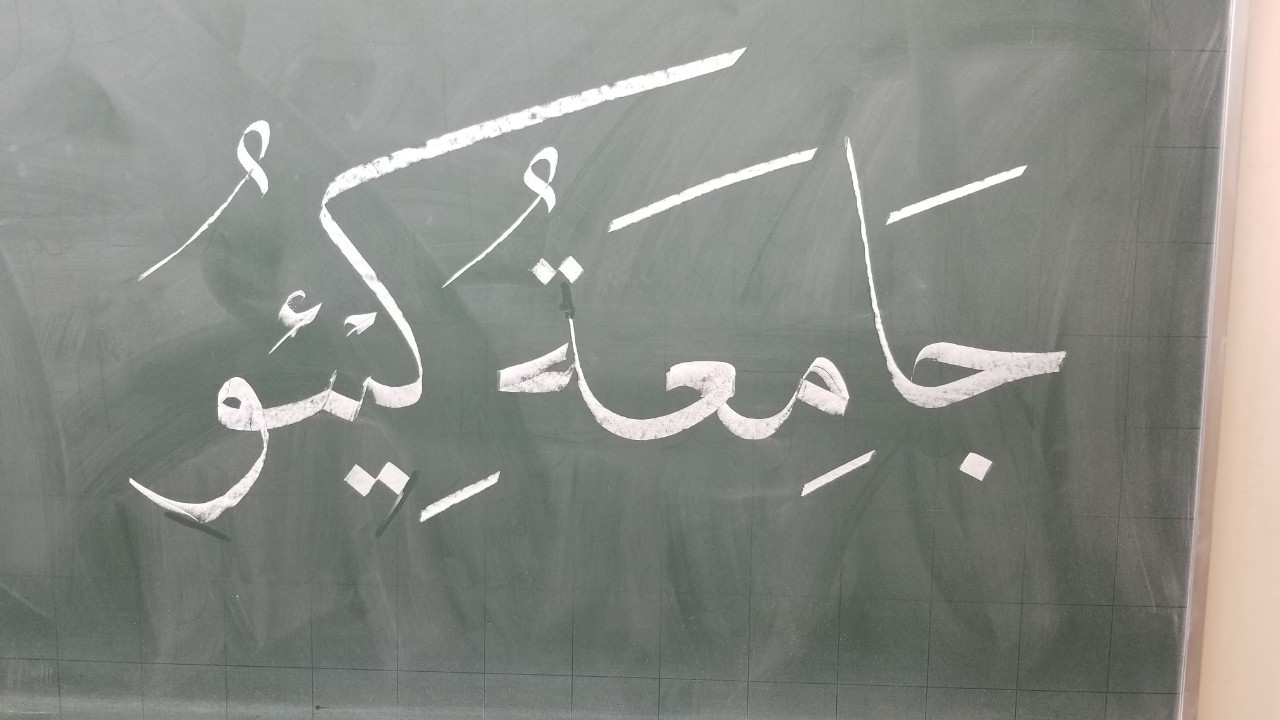 جَامِعَةُ كِيئُو